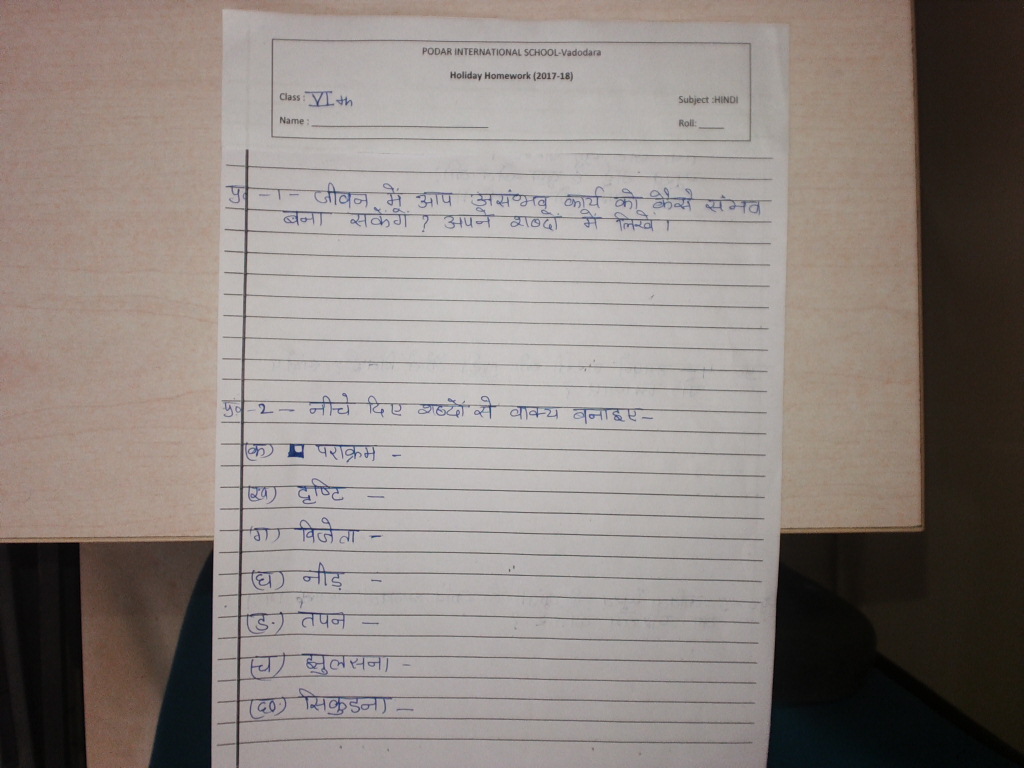 PODAR INTERNATIONAL SCHOOL-Vadodara
Holiday Homework (2017-18)
Class : VI th
Subject :HINDI
Name : ____________________
Roll: _____
प्र॰ -1- जीवन में आप असंभव कार्य को कैसे संभव
बना सकेंगें ? अपने शब्दों में लिखें।
प्र॰ -2 - नीचे दिए शब्दों से वाक्य बनाइए-
(क) पराक्रम -
(ख) दृष्टि -
(ग) विजेता -
(घ) नीड़ -
(ङ) तपन -
(च) झुलसना -
(छ) सिकुड़ना -